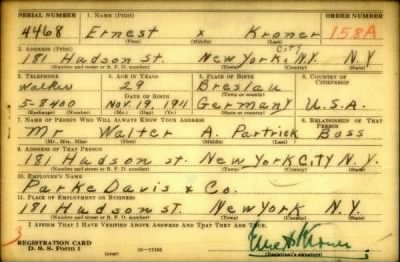 SERIAL NUMBER 1. NAME (Print) ORDER NUMBER
4468 Ernest x Kroner 158A
(First) (Middle) (Last)
2. ADDRESS (Print)
181 Hudson St. New York CITY N.Y. N.Y
(Number and street or R. F. D. number) (Town) (County) (State)
3. TELEPHONE 4. AGE IN YEARS 5. PLACE OF BIRTH 6. COUNTRY OF CITIZENSHIP
Walker 29 Breslau
DATE OF BIRTH (Town or county)
5-8400 Nov. 19, 1911 Germany U.S.A.
(Exchange) (Number) (Mo.) (Day) (Yr.) (State or country)
7. NAME OF PERSON WHO WILL ALWAYS KNOW YOUR ADDRESS 8. RELATIONSHIP OF THAT PERSON
Mr Walter A. Partrick Boss
(Mr., Mrs., Miss) (First) (Middle) (Last)
9. ADDRESS OF THAT PERSON
181 Hudson st. New York CiTy N.Y.
(Number and street or R. F. D. number) (Town) (County) (State)
10. EMPLOYER'S NAME
Parke Davis & Co.
11. PLACE OF EMPLOYMENT OR BUSINESS
181 Hudson st. New York N.Y.
(Number and street or R. F. D. number) (Town) (County) (State)
I AFFIRM THAT I HAVE VERIFIED ABOVE ANSWERS AND THAT THEY ARE TRUE.
3
REGISTRATION CARD
D. S. S. Form 1 (Registrant's signature)